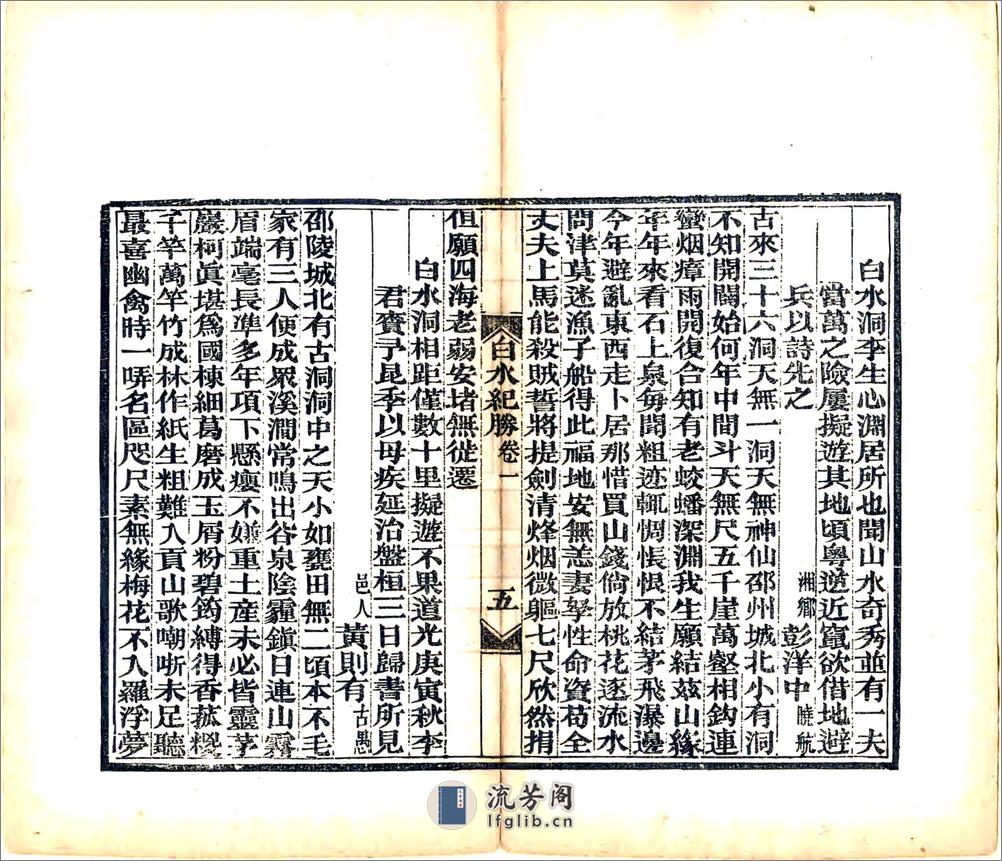 白水洞李生心淵居所也聞山水奇秀並有一夫
當萬之險屢擬遊其地頃粵逆近竄欲借地避
兵以詩先之
湘鄉彭洋中曉航
古來三十六洞天無一洞天無神仙邵州城北小有洞
不知開闢始何年中間斗天無尺五千崖萬壑相鈎連
蠻烟瘴雨開復合知有老蛟蟠深淵我生願結茲山緣
年年來看石上泉每聞粗迹輒惆悵恨不結茅飛瀑邊
今年避亂東西走卜居那惜買山錢倘放桃花逐流水
問津莫迷漁子船得此福地安無恙妻孥性命資苟全
丈夫上馬能殺賊誓將提劍清烽烟微軀七尺欣然捐
但願四海老弱安堵無徙遷
白水洞相距僅數十里擬遊不果道光庚寅秋李
君賚予昆季以母疾延治盤桓三日歸書所見
邑人黃則有古愚
邵陵城北有古洞洞中之天小如甕田無二頃本不毛
家有三人便成眾溪澗常鳴出谷泉陰霾鎭日連山霧
眉端毫長準多年項下懸癭不嫌重土產未必皆靈茅
巖柯眞堪爲國棟細葛磨成玉屑粉碧筠縛得香菰糉
千竿萬竿竹成林作紙生粗難入貢山歌嘲哳未足聽
最喜幽禽時一哢名區咫尺素無緣梅花不入羅浮夢
白水紀勝
卷一
五
流芳阁
lfglib.cn